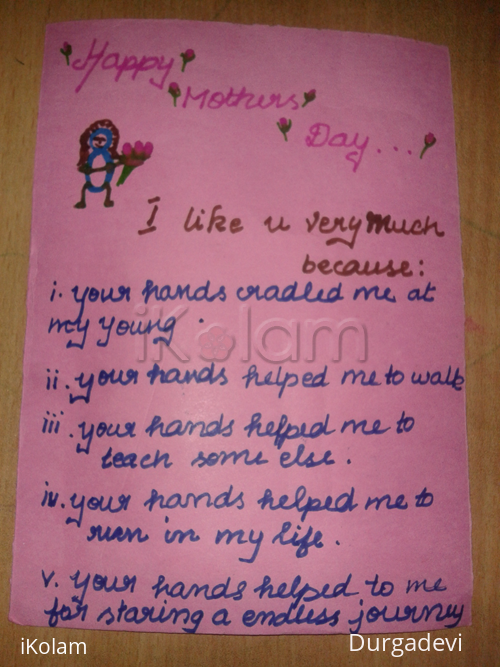 Happy
Mothers
Day...
I like u very much
because:
i. your hands cradled me at
my young.
iKolam
ii. your hands helped me to walk
iii. your hands helped me to
teach some else.
iv. your hands helped me to
run in my life.
v. your hands helped to me
for staring a endless journey
iKolam
Durgadevi